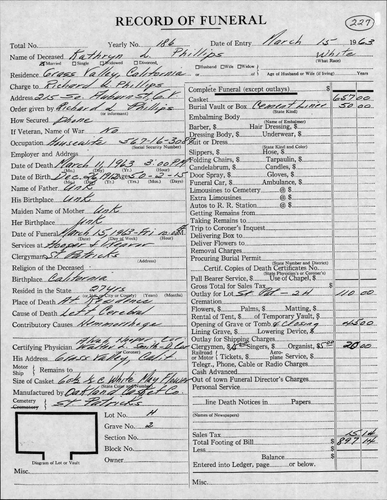 RECORD OF FUNERAL
227
Total No. Yearly No. 186 Date of Entry March 15 1963
Name of Deceased Kathryn L. Phillips White
Married Single Widowed Divorced (What Race)
Residence Grass Valley, California Husband Wife Widow Age of Husband or Wife (if living) Years
Charge to Richard L. Phillips Complete Funeral (except outlays) $
Address 215-50 Casket 657 00
Order given by Richard Phillips Burial Vault or Box Cement Liner 50 00
(or informant) (State Kind)
How Secured phone Embalming Body
If Veteran, Name of War No Barber, $ Hair Dressing, $
Occupation Housewife 567-16-3088 Dressing Body, $ Underwear, $
(Social Security Number) (State Kind and Color)
Employer and Address Suit or Dress
Slippers, $ Hose, $
Date of Death March 11, 1963 3:00 P.M. Folding Chairs, $ Tarpaulin, $
Candelabrum, $ Candles, $
Date of Birth Dec. 26, 50-2-15 Door Spray, $ Gloves, $
Name of Father Unk Funeral Car, $ Ambulance, $
His Birthplace Unk Limousines to Cemetery @ $
Extra Limousines @ $
Maiden Name of Mother Unk Autos to R. R. Station @ $
Her Birthplace Unk Getting Remains from
Taking Remains to
Date of Funeral March 15, 1963-Fri. 10 A.M. Trip to Coroner's Inquest
Services at Hooper & Weaver Delivering Box to
Clergyman St Patricks Deliver Flowers to
Religion of the Deceased Removal Charges
Procuring Burial Permit
(State Number and District)
Birthplace California Certif. Copies of Death Certificates No.
(State Physician's or Coroner's)
Resided in the State 27 yrs Pall Bearer Service, $ Use of Chapel, $
Gross Total for Sales Tax $
Place of Death At Residence Outlay for Lot St Pat - 2H 110 00
Cremation
Cause of Death Left Cerebral Flowers, $ Palms, $ Matting, $
Rental of Tent, $ of Temporary Vault, $
Contributory Causes Hemmorrhage Opening of Grave or Tomb & Closing 45 00
Lining Grave, $ Lowering Device, $
Outlay for Shipping Charges
Certifying Physician Clergymen, $ Singers, $ Organist, $ 5.00 20 00
His Address Grass Valley, Calif. Railroad or Motor Tickets, $ Aeroplane Service, $
Motor Ship Telg., Phone, Cable or Radio Charges
Remains Cash Advanced
Size of Casket White May Flower Out of town Funeral Director's Charges
Manufactured by Oakland Casket Co. Personal Service
Cemetery St Patricks
Crematory line Death Notices in Papers
Lot No. H (Names of Newspapers)
Grave No. 2
Section No. Sales Tax 15 14
Block No. Total Footing of Bill $ 897 14
Owner Less $
Balance $
Diagram of Lot or Vault Entered into Ledger, page or below.
Misc. Misc.